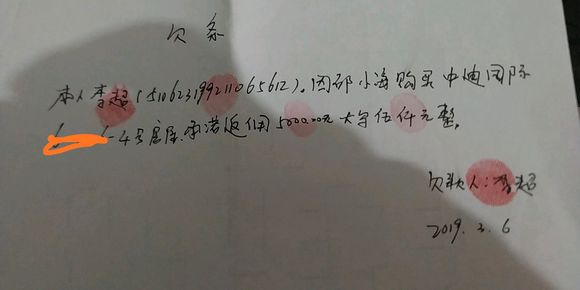 欠条
本人李超(510623199211065612).因邵小海购买中迪国际
4号房屋.承诺返佣5000.00元大写伍仟元整。
欠款人:李超
2019.3.6